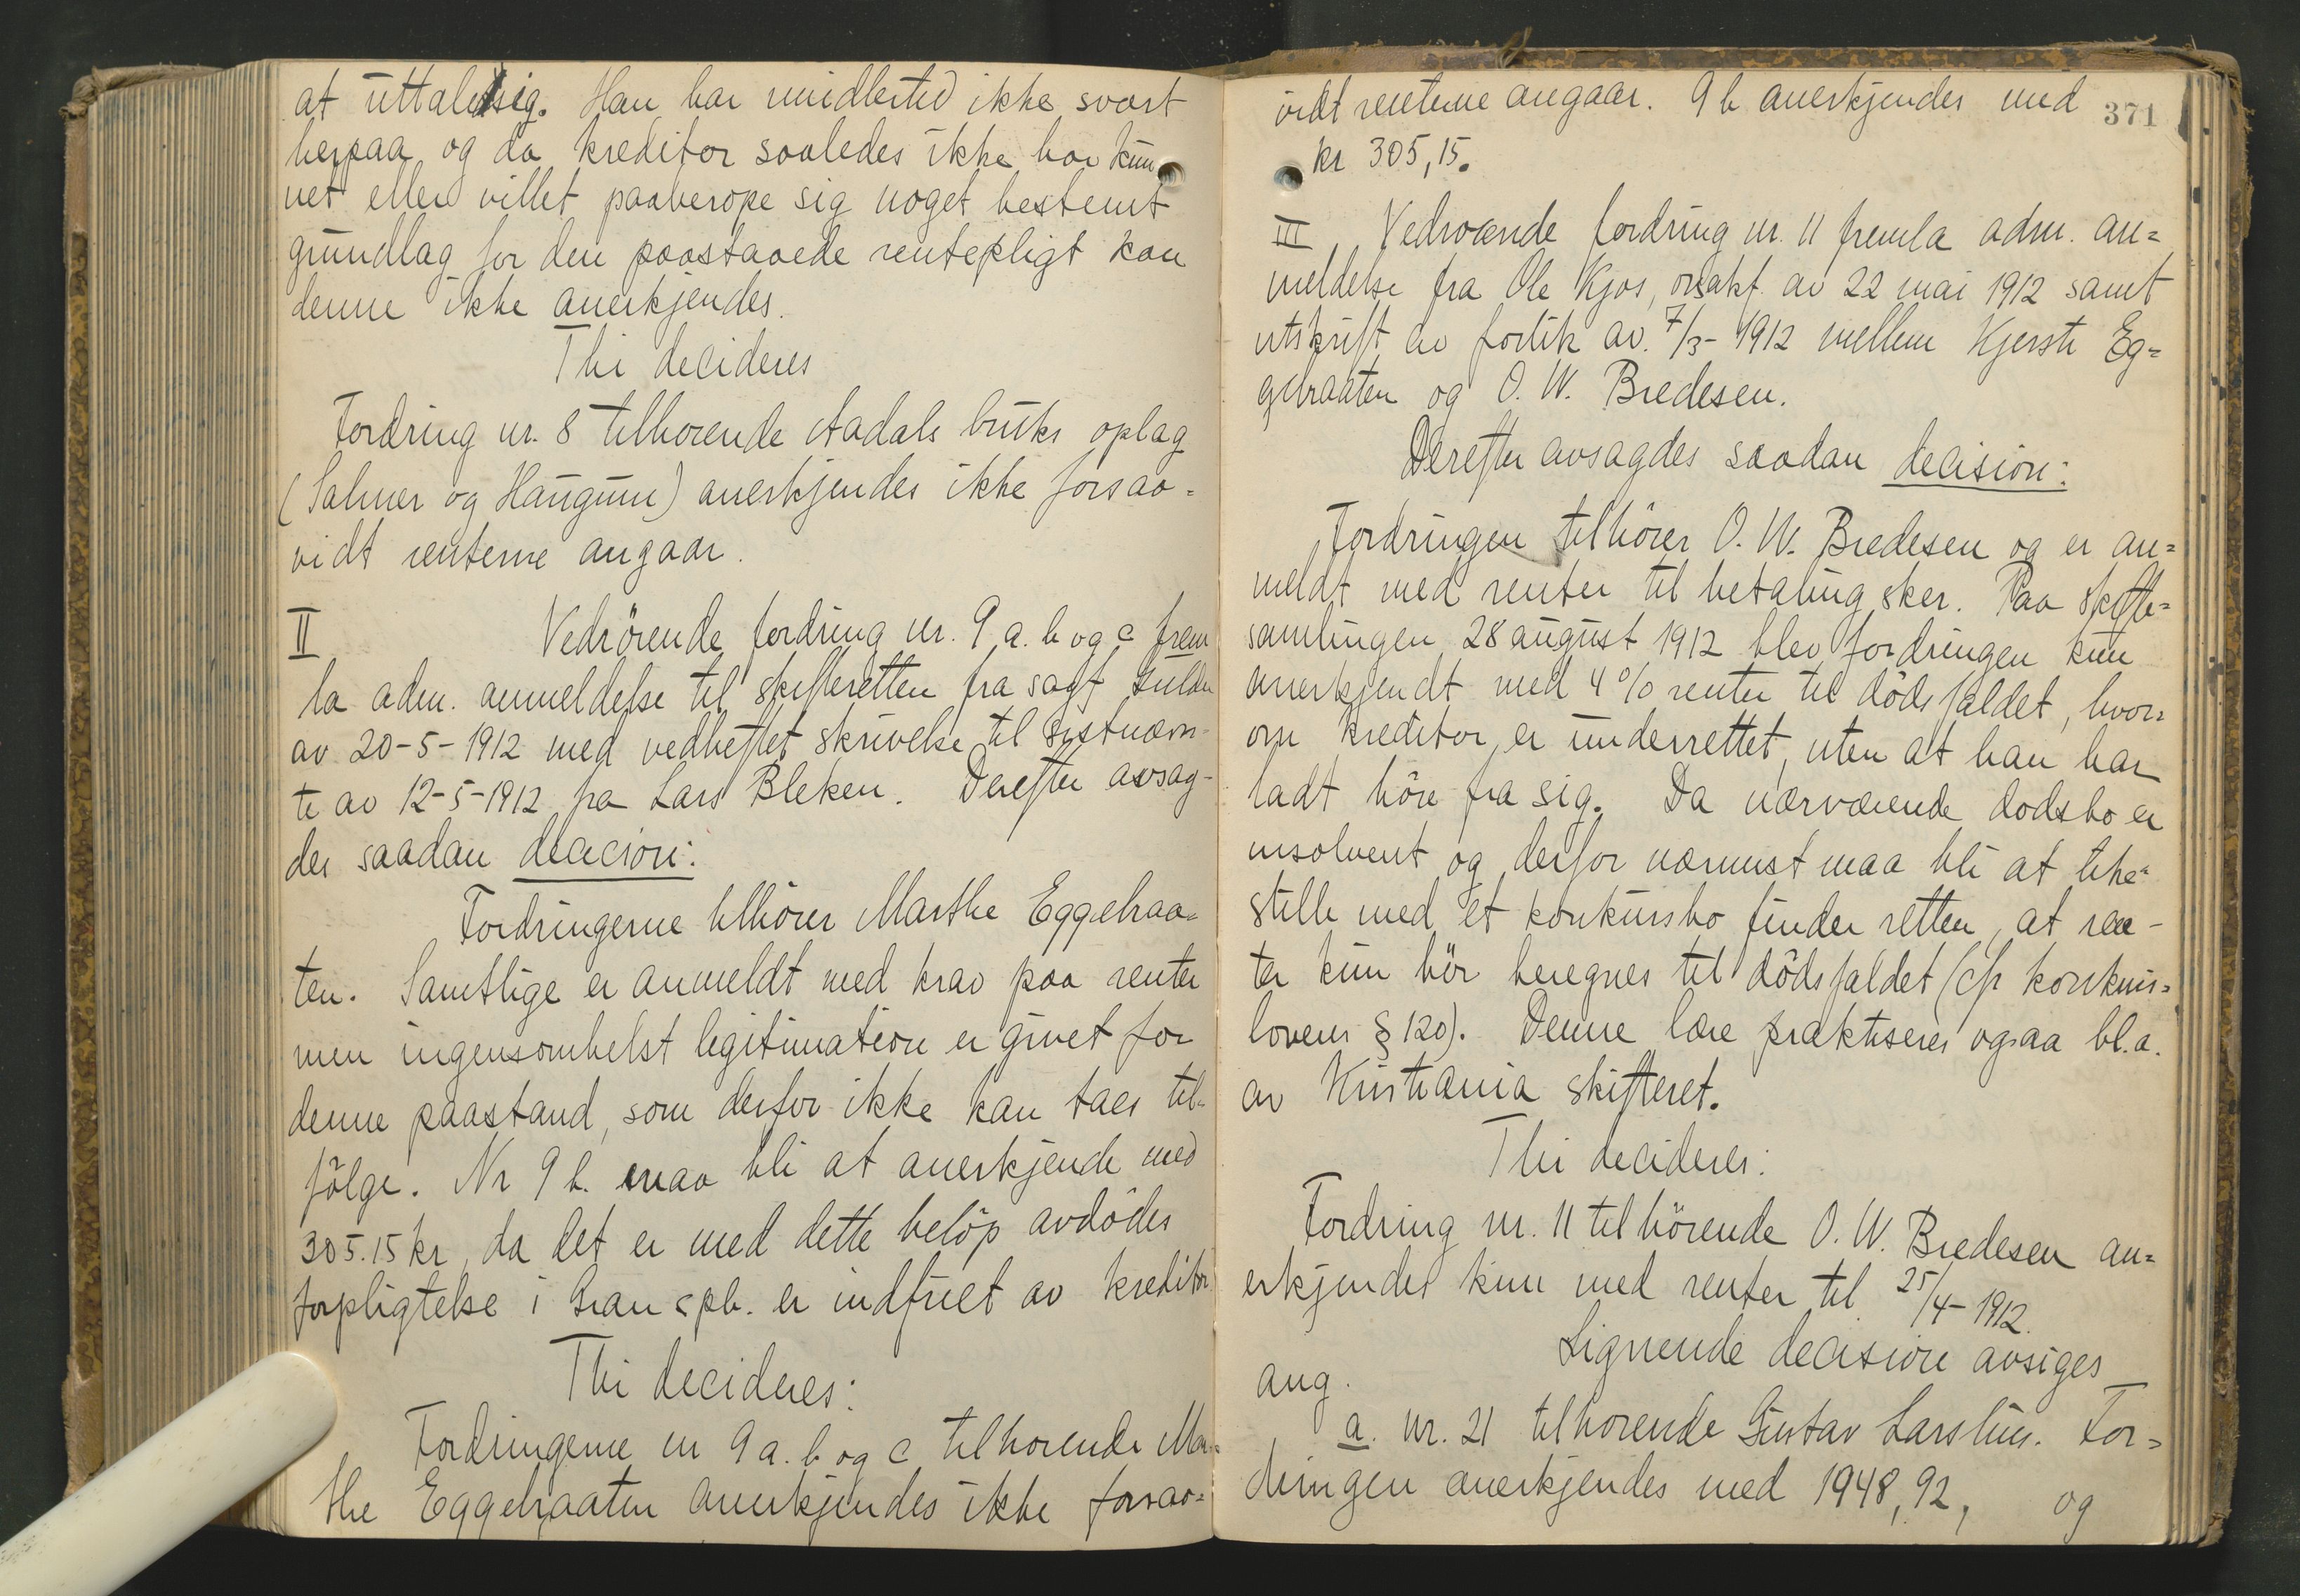 at uttale sig. Han har imidlertid ikke svart
herpaa og da kreditor saaledes ikke har kun-
net eller villet paaberope sig noget bestemt
grundlag for den paastaaede rentepligt kan
denne ikke anerkjendes.
Thi decideres
Fordring nr. 8 tilhorende Aadals bruks oplag
(Salmer og Haugum) anerkjendes ikke forsaa-
vidt renterne angaar.
II Vedrörende fordring nr. 9 a. b og c frem
la adm. anmeldelse til skifteretten fra sagf.
av 20-5-1912 med vedheftet skrivelse til sistnævn-
te av 12-5-1912 fra Lars Bleken. Derefter avsag-
des saadan decision:
Fordringerne tilhörer Marthe Eggebraa-
ten. Samtlige er anmeldt med krav paa renter
men ingensomhelst legitimation er givet for
denne paastand, som derfor ikke kan taes til-
fölge. Nr 9 b. maa bli at anerkjende med
305.15 kr, da det er med dette belöp avdödes
forpligtelse i Gran spb. er indfriet av kreditor.
Thi decideres:
Fordringerne nr 9 a. b og c tilhorende Mar-
the Eggebraaten anerkjendes ikke forsaa-
371
vidt renterne angaar. 9 b anerkjendes med
kr 305,15.
III Vedrorende fordring nr. 11 fremla adm. an-
meldelse fra Ole Kjos, o.r.sakf. av 22 mai 1912 samt
utskrift av forlik av 7/3-1912 mellem Kjersti Eg-
gebraaten og O. W. Bredesen.
Derefter avsagdes saadan decision:
Fordringen tilhörer O. W. Bredesen og er an-
meldt med renter til betaling sker. Paa skifte-
samlingen 28 august 1912 blev fordringen kun
anerkjendt med 4 % renter til dödsfaldet, hvor-
om kreditor er underrettet, uten at han har
ladt höre fra sig. Da nærværende dodsbo er
insolvent og derfor nærmest maa bli at like-
stille med et konkursbo finder retten, at ren-
ter kun bör beregnes til dödsfaldet (cfr konkurs-
lovens § 120). Denne lære praktiseres ogsaa bl. a.
av Kristiania skifteret.
Thi decideres:
Fordring nr. 11 tilhörende O. W. Bredesen an-
erkjendes kun med renter til 25/4-1912.
Lignende decision avsiges
ang.
a. nr. 21 tilhorende Gustav Larslin. For-
dringen anerkjendes med 1948,92, og